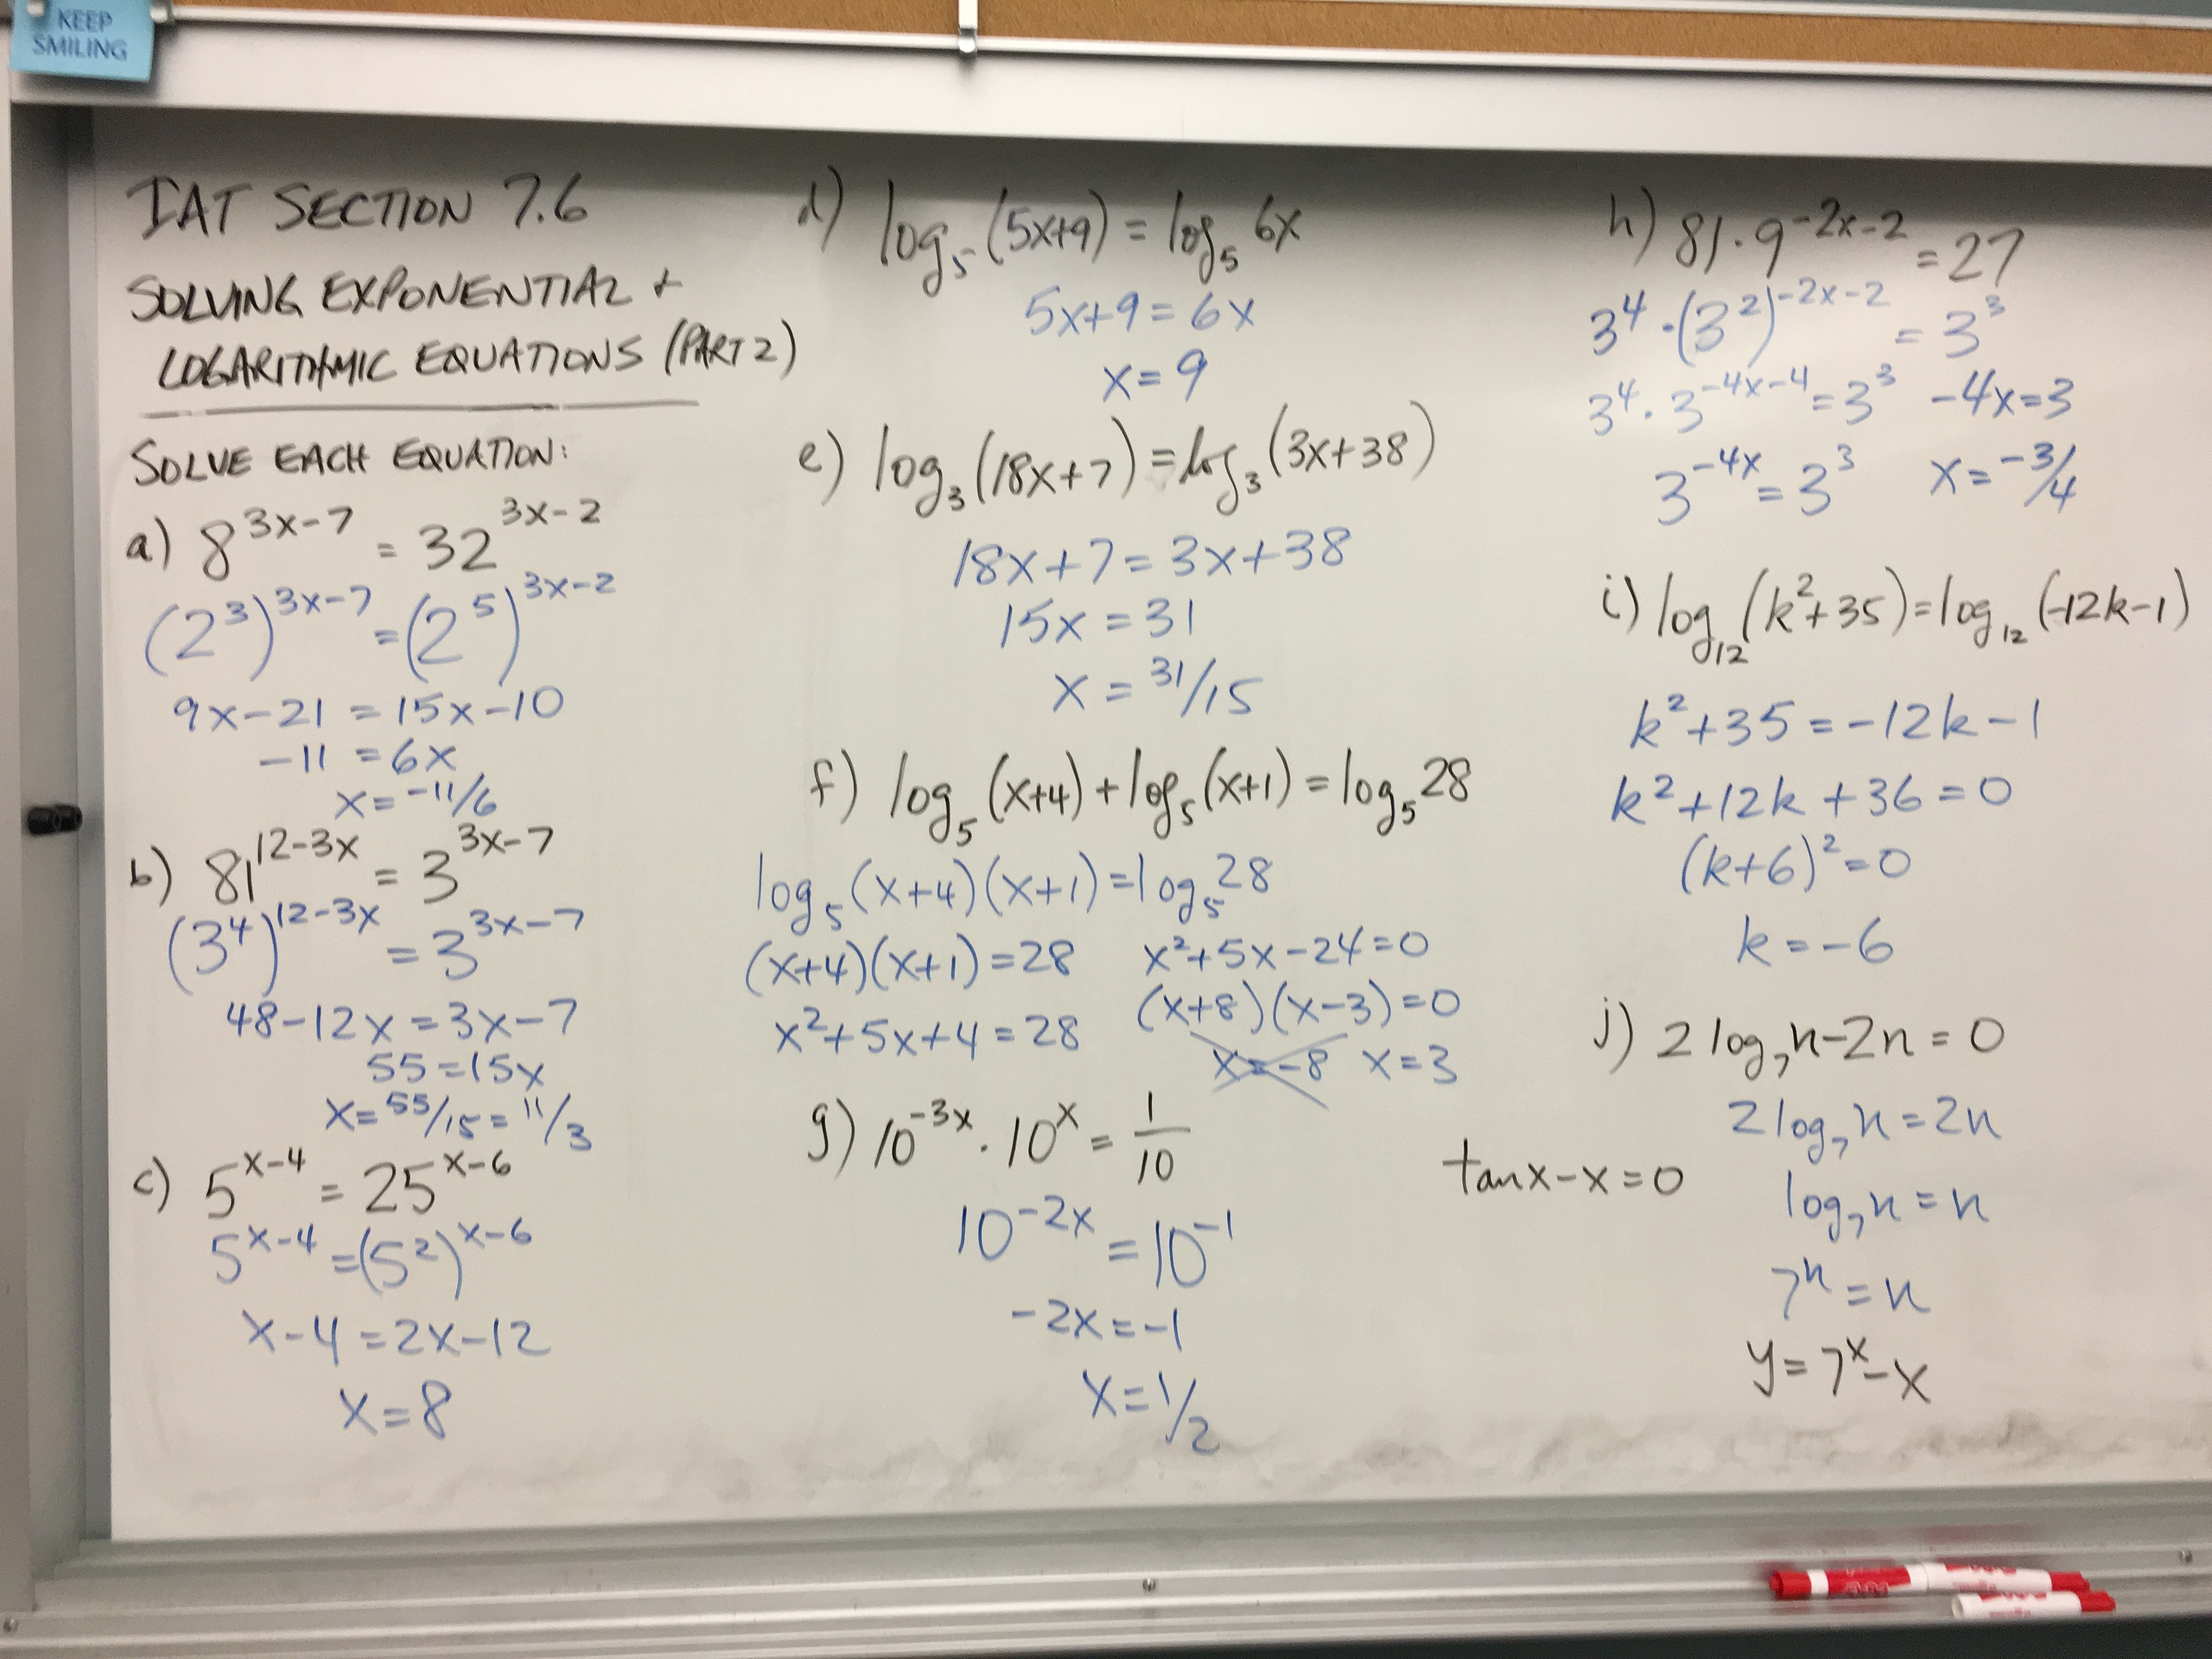 KEEP
SMILING
IAT SECTION 7.6
SOLVING EXPONENTIAL +
LOGARITHMIC EQUATIONS (PART 2)
SOLVE EACH EQUATION:
a) 8^(3x-7) = 32^(3x-2)
(2^3)^(3x-7) = (2^5)^(3x-2)
9x-21 = 15x-10
-11 = 6x
x = -11/6
b) 81^(12-3x) = 3^(3x-7)
(3^4)^(12-3x) = 3^(3x-7)
48-12x = 3x-7
55 = 15x
x = 55/15 = 11/3
c) 5^(x-4) = 25^(x-6)
5^(x-4) = (5^2)^(x-6)
x-4 = 2x-12
x = 8
d) log_5 (5x+9) = log_5 6x
5x+9 = 6x
x = 9
e) log_3 (18x+7) = log_3 (3x+38)
18x+7 = 3x+38
15x = 31
x = 31/15
f) log_5 (x+4) + log_5 (x+1) = log_5 28
log_5 (x+4)(x+1) = log_5 28
(x+4)(x+1) = 28
x²+5x+4 = 28
x²+5x-24 = 0
(x+8)(x-3) = 0
x = -8 x = 3
g) 10^(-3x) · 10^x = 1/10
10^(-2x) = 10^(-1)
-2x = -1
x = 1/2
h) 81 · 9^(-2x-2) = 27
3^4 · (3^2)^(-2x-2) = 3^3
3^4 · 3^(-4x-4) = 3^3
3^(-4x) = 3^3
-4x = 3
x = -3/4
i) log_12 (k²+35) = log_12 (-12k-1)
k²+35 = -12k-1
k²+12k+36 = 0
(k+6)² = 0
k = -6
j) 2 log_7 n - 2n = 0
2 log_7 n = 2n
log_7 n = n
7^n = n
y = 7^x - x
tan x - x = 0